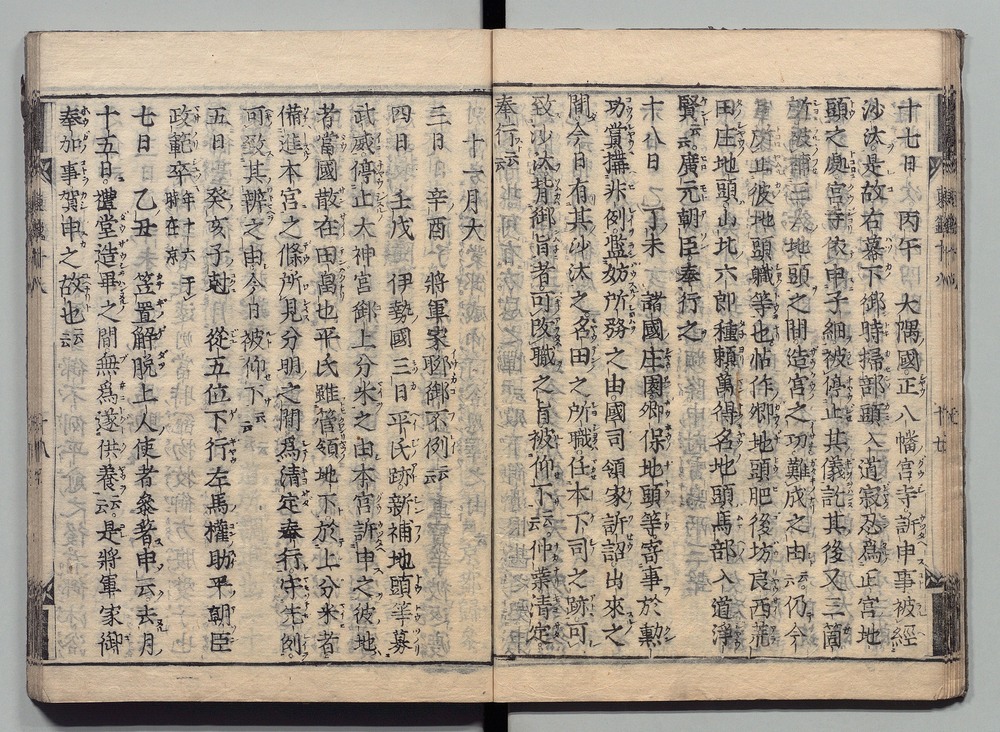 十七日 丙午 大隅國正八幡宮寺訴申事被經
沙汰是故右幕下御時掃部頭入道寂忍爲正宮地
頭之處宮寺依申子細被停止其儀訖其後又三箇
所被補三人地頭之間造宮之功難成之由云云仍今
度止彼地頭職等也帖佐郷地頭肥後坊良西荒
田庄地頭山北六郎種頼萬得名地頭馬部入道淨
賢云云廣元朝臣奉行之
十八日 丁未 諸國庄園郷保地頭等寄事於勲
功賞搆非例濫妨所務之由國司領家訴詔出來之
間今日有其沙汰之名田之所職任本下司之跡可
致沙汰背御旨者可改職之旨被仰下云云仲業清定
奉行云云
十二月大
三日 辛酉 將軍家聊御不例云云
四日 壬戌 伊勢國三日平氏跡新補地頭等募
武威停止太神宮御上分米之由本宮訴申之彼地
者當國散在田畠也平氏雖管領地下於上分米者
備進本宮之條所見分明之間爲清定奉行守先例
可致其辨之由今日被仰下云云
五日 癸亥子尅 從五位下行左馬權助平朝臣
政範卒年十六于時在京
七日 乙丑 笠置解脱上人使者參著申云去月
十五日禮堂造畢之間無爲遂供養云云是將軍家御
奉加事賀申之故也云云